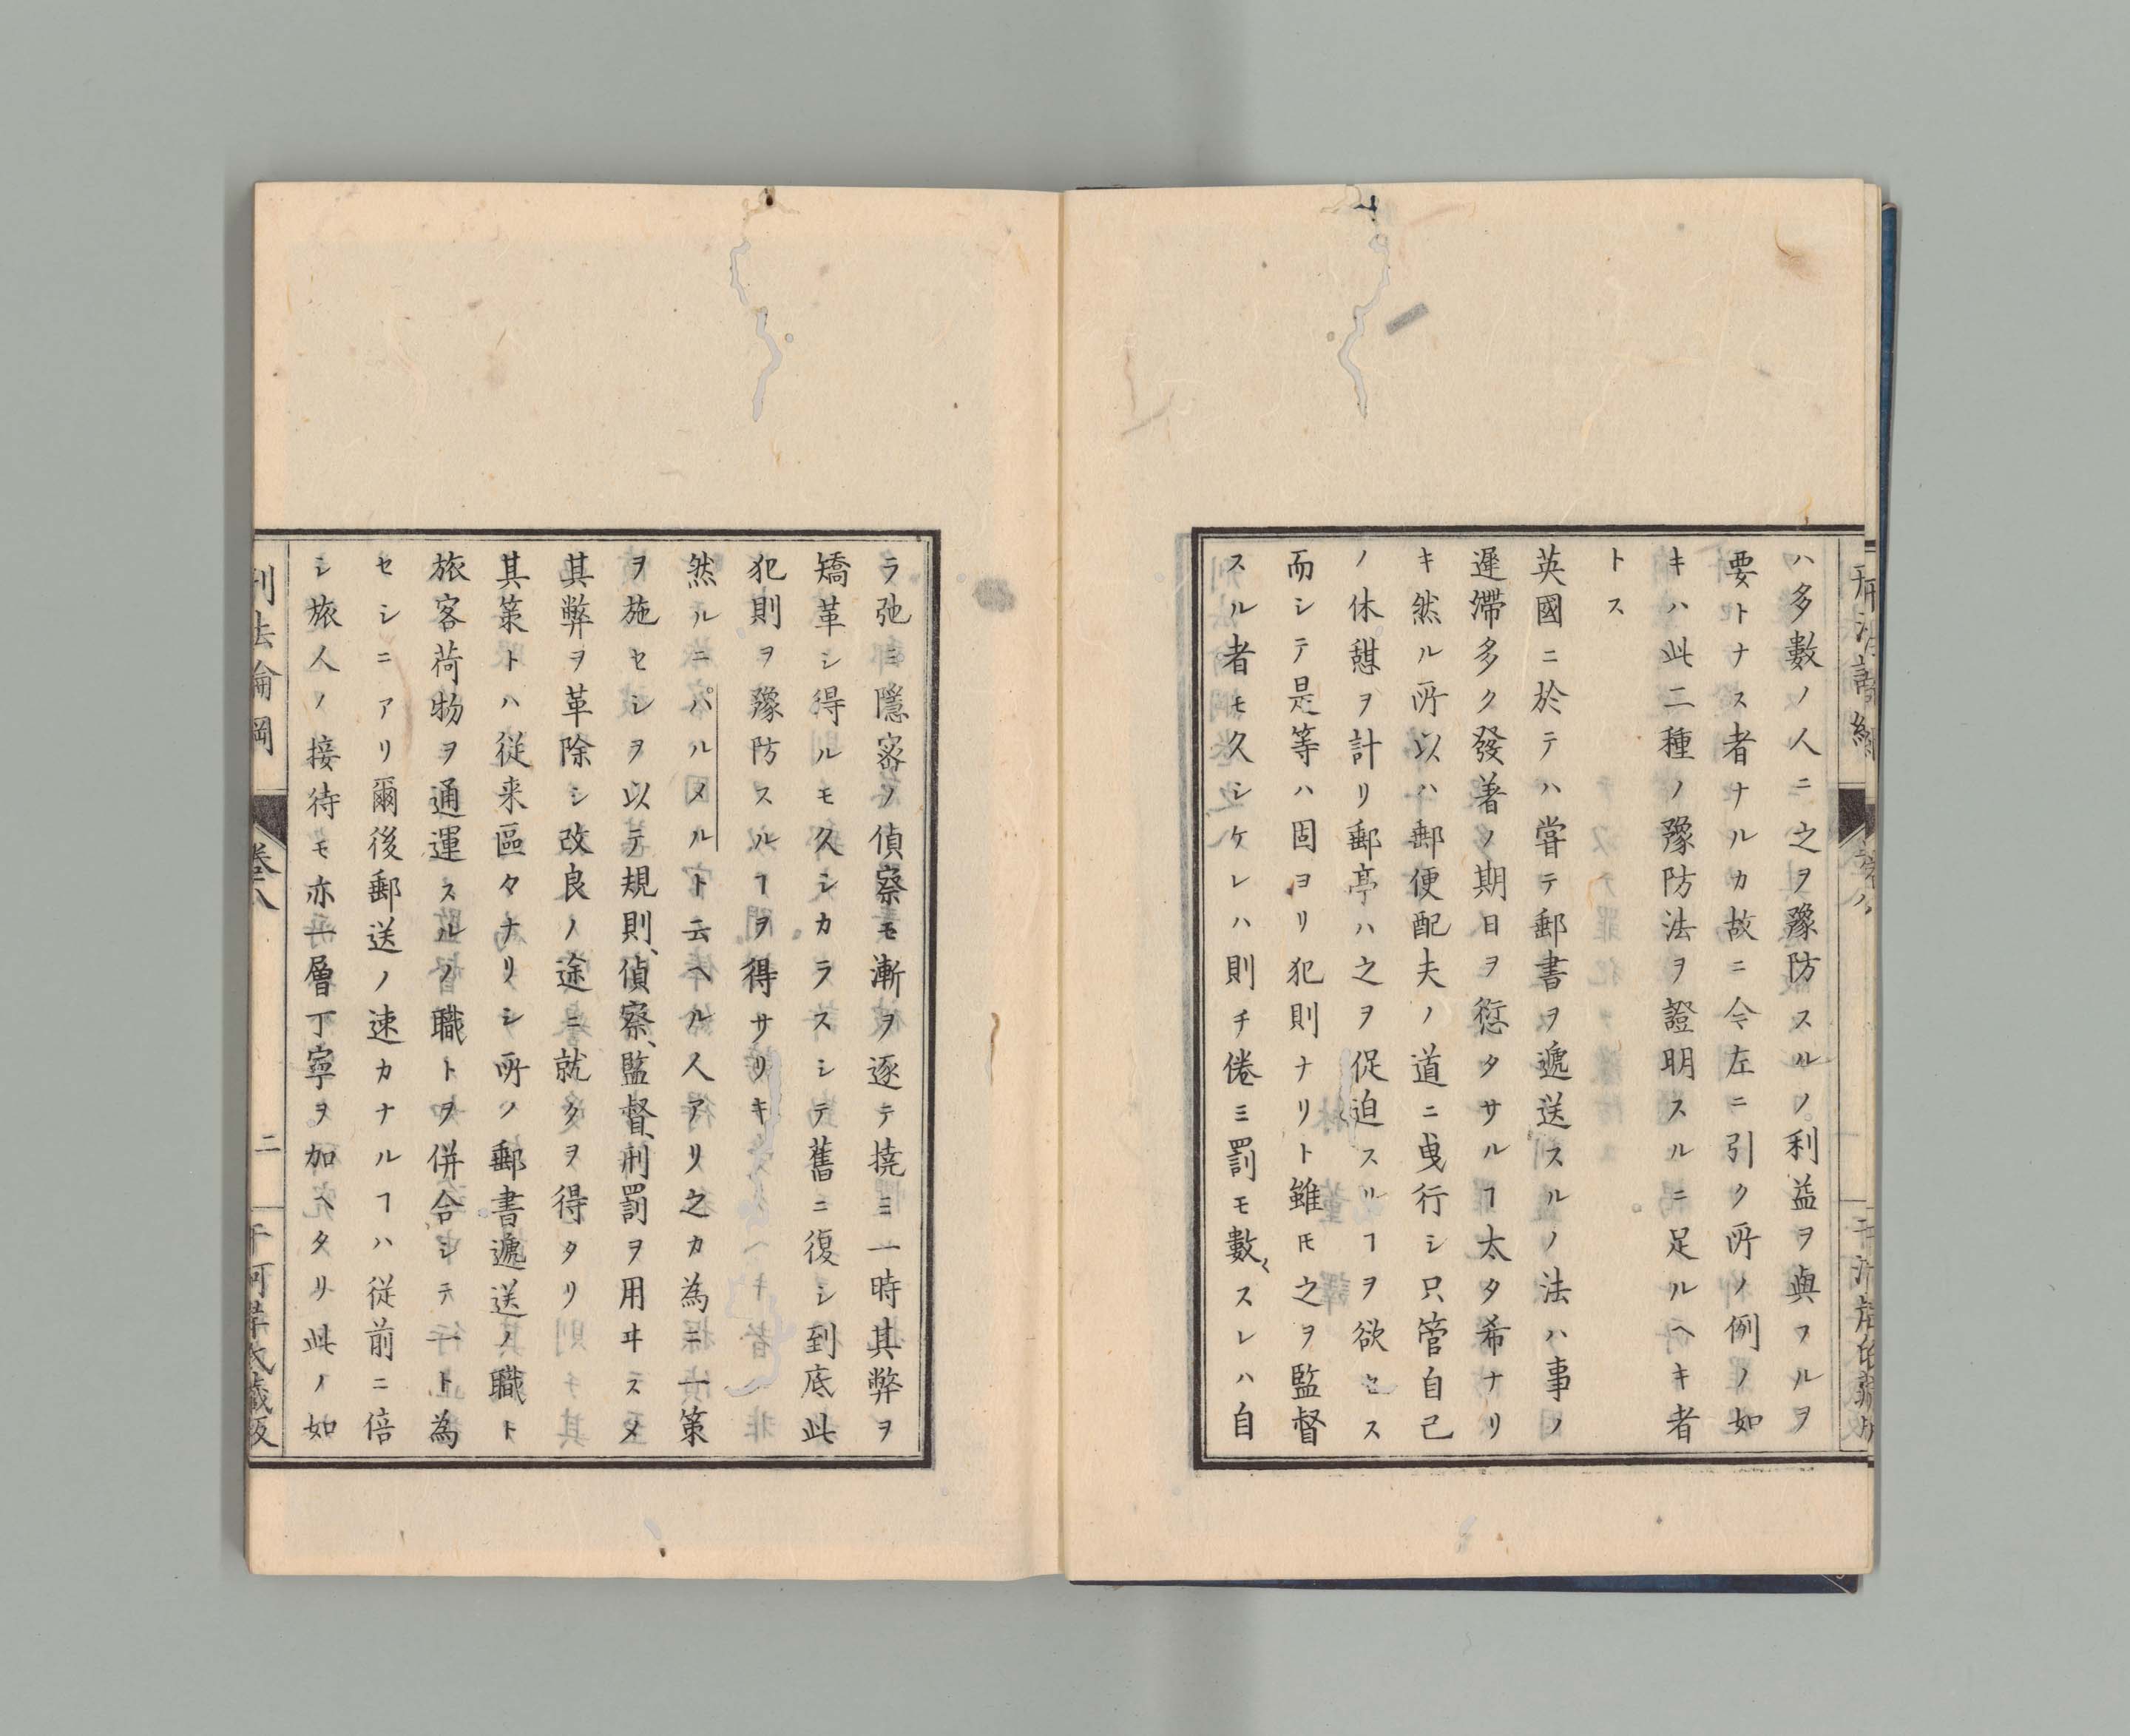 ハ多數ノ人ニ之ヲ豫防スルノ利益ヲ與フルヲ
要トナス者ナルカ故ニ今左ニ引ク所ノ例ノ如
キハ此二種ノ豫防法ヲ證明スルニ足ルヘキ者
トス
英國ニ於テハ甞テ郵書ヲ遞送スルノ法ハ事ノ
遲滯多ク發著ノ期日ヲ愆タサルヿ太タ希ナリ
キ然ル所以ハ郵便配夫ノ道ニ曵行シ只管自己
ノ休憇ヲ計リ郵亭ハ之ヲ促迫スルヿヲ欲セス
而シテ是等ハ固ヨリ犯則ナリト雖𪜈之ヲ監督
スル者モ久シケレハ則チ倦ミ罰モ數〻スレハ自
ラ弛ミ隱密ノ偵察モ漸ヲ逐テ撓ミ一時其弊ヲ
矯革シ得ルモ久シカラスシテ舊ニ復シ到底此
犯則ヲ豫防スルヿヲ得サリキ
然ルニパルメルト云ヘル人アリ之カ為ニ一策
ヲ施セシヲ以テ規則、偵察、監督、刑罰ヲ用ヰスメ
其弊ヲ革除シ改良ノ途ニ就クヲ得タリ
其策トハ從来區々ナリシ所ノ郵書遞送ノ職ト
旅客荷物ヲ通運スルノ職トヲ併合シテ一ト為
セシニアリ爾後郵送ノ速カナルヿハ従前ニ倍
シ旅人ノ接待モ亦一層丁寧ヲ加ヘタリ此ノ如
刑法論綱
卷八
二